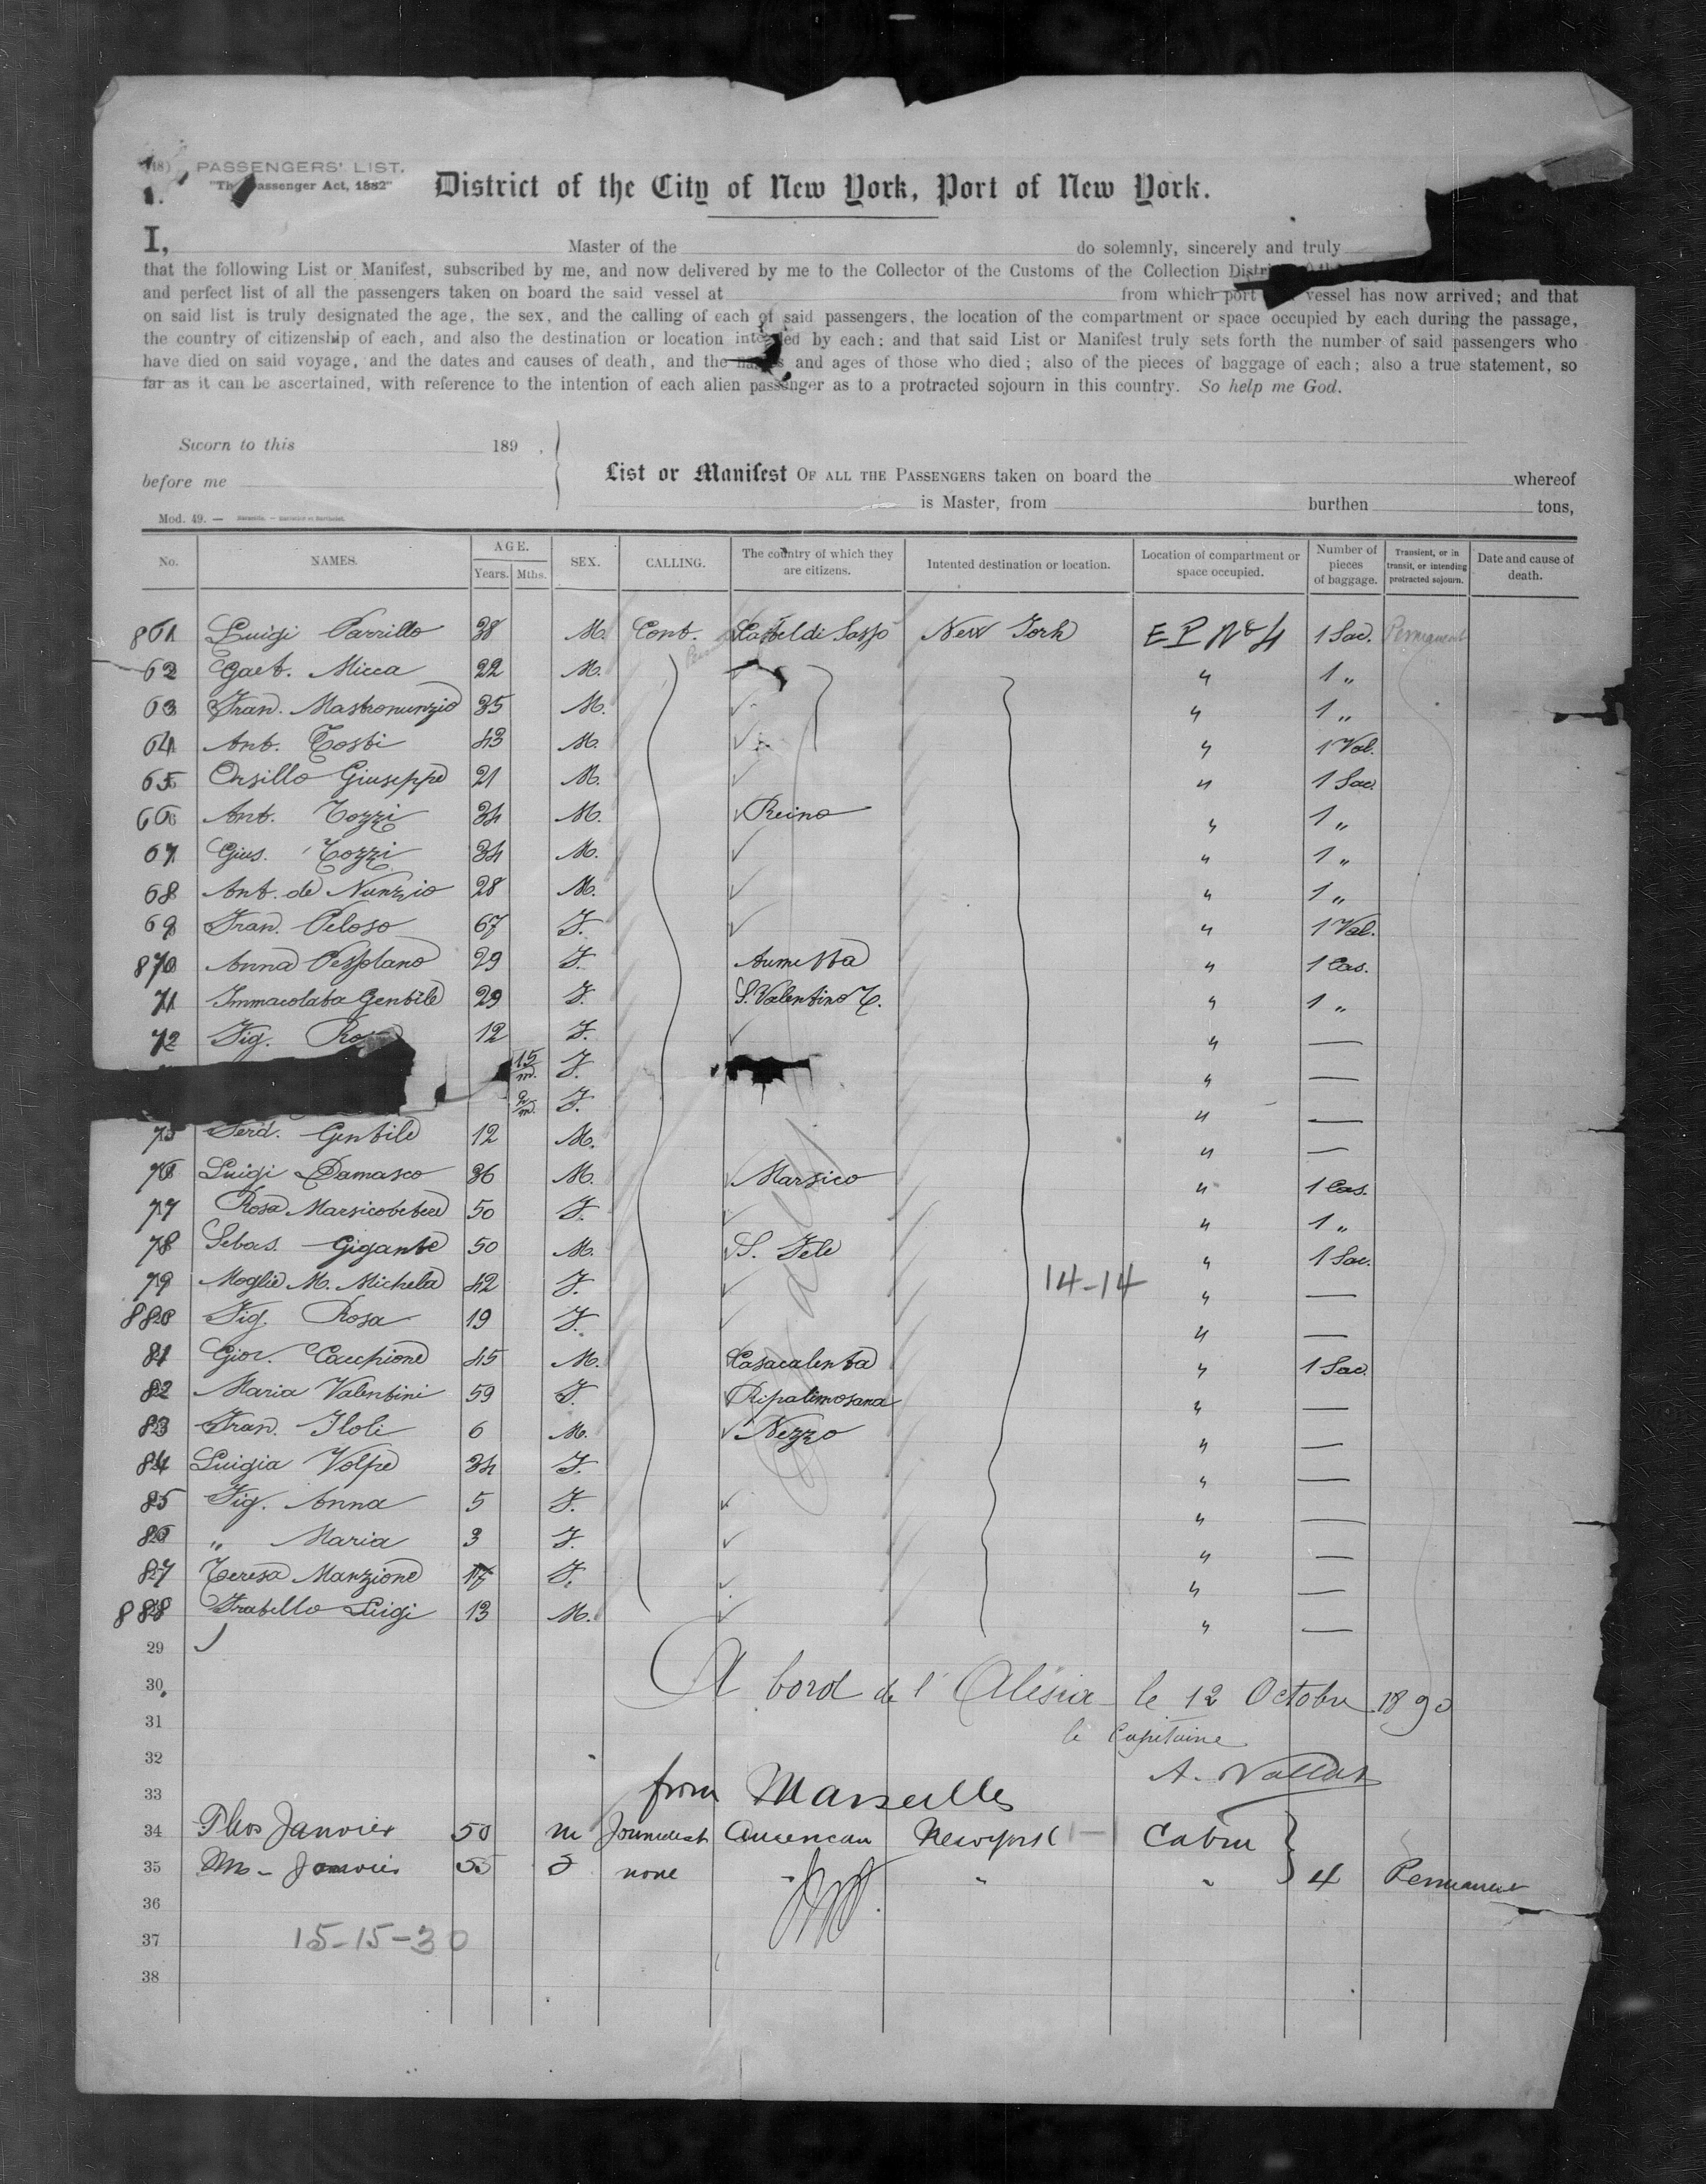 PASSENGERS' LIST.
"The Passenger Act, 1882"
District of the City of New York, Port of New York.
I, Master of the do solemnly, sincerely and truly
that the following List or Manifest, subscribed by me, and now delivered by me to the Collector of the Customs of the Collection
and perfect list of all the passengers taken on board the said vessel at from which port vessel has now arrived; and that
on said list is truly designated the age, the sex, and the calling of each of said passengers, the location of the compartment or space occupied by each during the passage,
the country of citizenship of each, and also the destination or location intended by each; and that said List or Manifest truly sets forth the number of said passengers who
have died on said voyage, and the dates and causes of death, and the names and ages of those who died; also of the pieces of baggage of each; also a true statement, so
far as it can be ascertained, with reference to the intention of each alien passenger as to a protracted sojourn in this country. So help me God.
Sworn to this 189 .
before me
List or Manifest OF ALL THE PASSENGERS taken on board the whereof
is Master, from burthen tons,
Mod. 49. —
No. NAMES. AGE. Years. Mths. SEX. CALLING. The country of which they are citizens. Intended destination or location. Location of compartment or space occupied. Number of pieces of baggage. Transient, or in transit, or intending protracted sojourn. Date and cause of death.
861 Luigi Parrillo 38 M. Cont. Casteldi Sasso New York E P No 4 1 Sac. Permanent
62 Gaet. Micca 22 M. " 1 "
63 Fran. Mastronunzio 35 M. " 1 "
64 Ant. Tosti 43 M. " 1 Val.
65 Orsillo Giuseppe 21 M. " 1 Sac.
66 Ant. Tozzi 34 M. Reino " 1 "
67 Gius. Tozzi 34 M. " 1 "
68 Ant. de Nunzio 28 M. " 1 "
69 Fran. Peloso 67 F. " 1 Val.
870 Anna 29 F. " 1 Cas.
71 Immacolata Gentile 29 F. S. Valentino T. " 1 "
72 Fig. Rosa 12 F. " —
15 m. F. " —
2 m. F. " —
75 Ferd. Gentile 12 M. " —
76 Luigi Damasco 36 M. Marsico " 1 Cas.
77 Rosa Marsicovetere 50 F. " 1 "
78 Sebas. Gigante 50 M. S. Fele " 1 Sac.
79 Moglie M. Michela 42 F. " —
14-14
880 Fig. Rosa 19 F. " —
81 Giov. Cacchione 45 M. Casacalenta " 1 Sac.
82 Maria Valentini 59 F. Ripalimosana " —
83 Fran. Iloli 6 M. Nezzo " —
84 Luigia Volpe 34 F. " —
85 Fig. Anna 5 F. " —
86 " Maria 3 F. " —
87 Teresa Manzione 17 F. " —
888 Fratello Luigi 13 M. " —
29
30 A bord de l'Alésia le 12 Octobre 1890
31 le Capitaine
32 A. Vallat
33 from Marseilles
34 Thos Janvier 50 m Journalist American New York Cabin
35 Mrs Janvier 55 f none " " " 4 Permanent
36
37 15-15-30
38